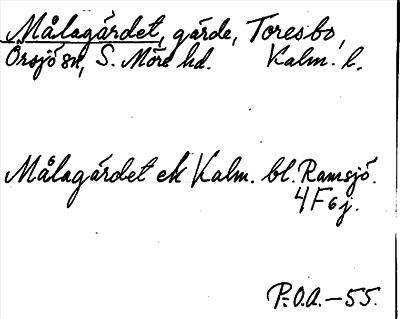 Målagärdet, gärde, Toresbo,
Örsjö sn, S. Möre hd. Kalm. l.
Målagärdet ek Kalm. bl. Ramsjö.
4F6j.
P.O.A. – 55.